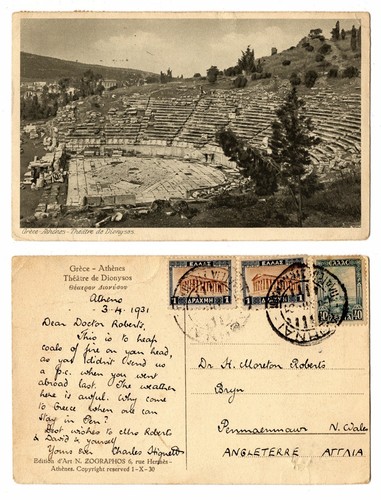 Grèce - Athènes - Théâtre de Dionysos.
Grèce - Athènes
Théâtre de Dionysos
Θέατρον Διονύσου
Athens
3-4. 1931
Dear Doctor Roberts.
This is to heap
coals of fire on your head,
as you didn't send us
a p.c. when you went
abroad last. The weather
here is awful. Why come
to Greece when one can
stay in Pen?
Best wishes to Mrs Roberts
& David & yourself
Yours ever Charles
Edition d'Art N. ZOGRAPHOS 6, rue Hermès-
Athènes. Copyright reserved 1-X-30
ΕΛΛΑΣ
1 ΔΡΑΧΜΗ 1
ΕΛΛΑΣ
1 ΔΡΑΧΜΗ 1
ΕΛΛΑΣ
Dr H. Moreton Roberts
Bryn
Penmaenmawr N. Wales
ANGLETERRE ΑΓΓΛΙΑ